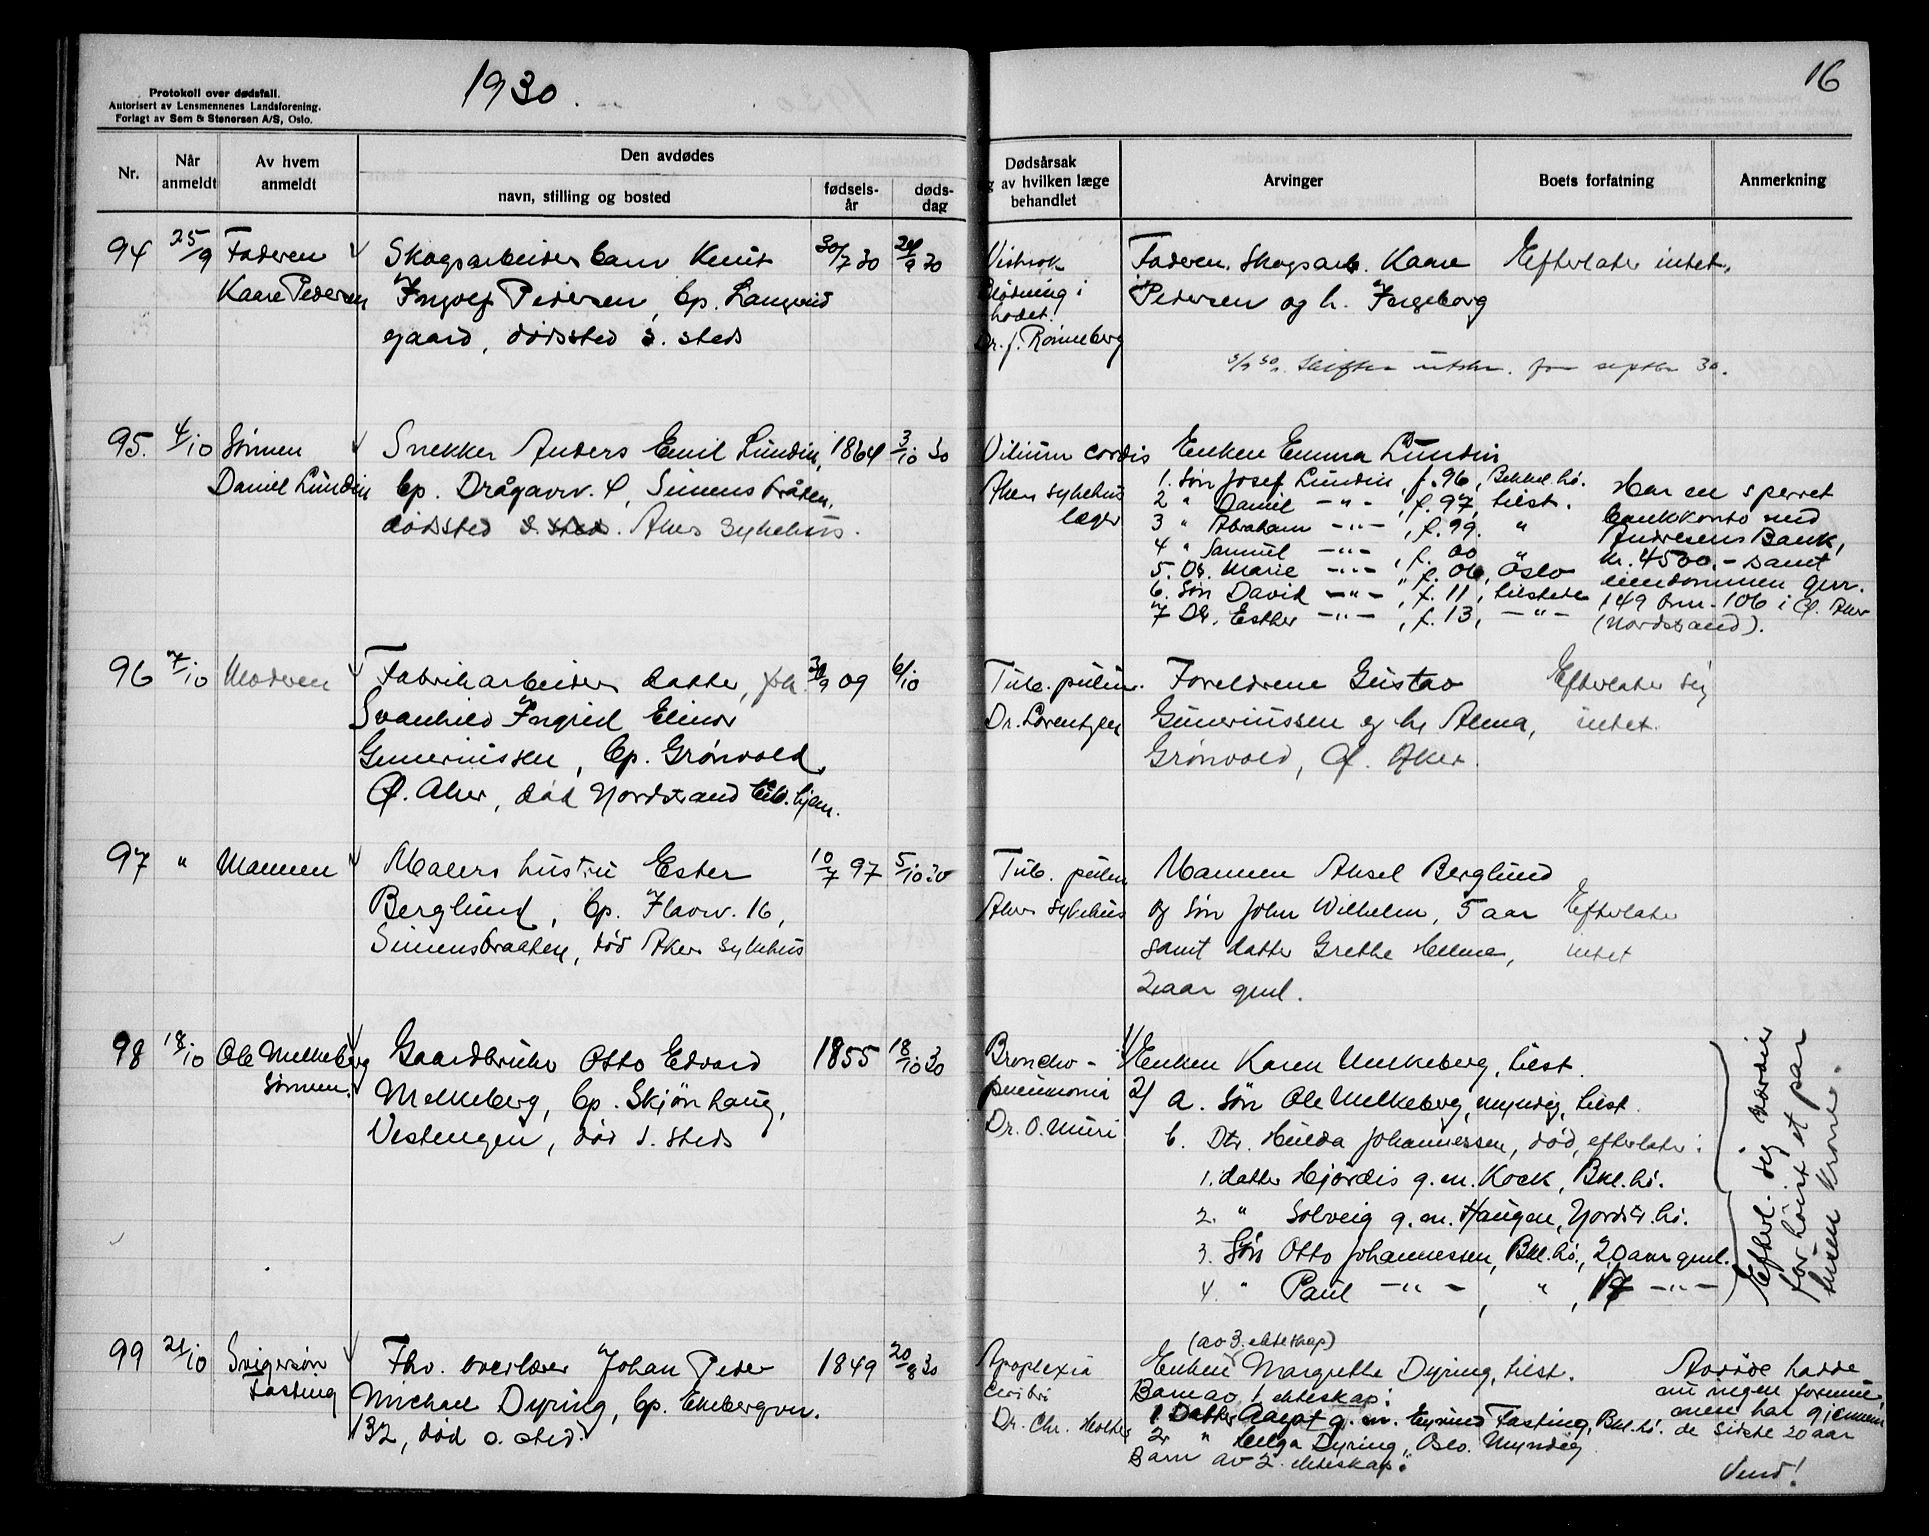 Protokoll over dødsfall.
Autorisert av Lensmennenes Landsforening.
Forlagt av Sem & Stenersen A/S, Oslo.
1930.
16
Nr.
Når anmeldt
Av hvem anmeldt
Den avdødes
navn, stilling og bosted
fødsels-år
døds-dag
Dødsårsak
og av hvilken læge
behandlet
Arvinger
Boets forfatning
Anmerkning
94 25/9 Faderen
Kaare Pedersen
Skogsarbeiders barn Knut
Ingolf Pedersen, bp.
gaard, dødssted s. steds
30/7 30
9 30
blødning i
hodet.
Dr. f. Rønneberg
Faderen, Skogsarb. Kaare
Pedersen og h. Ingeborg
Efterlater intet.
Skiften utskr. for septbr 30.
95. 4/10 Sønnen
Daniel Lundin
Snekker Anders Emil Lundin,
bp. Drågavv. 4, Simensbråten,
dødssted s. sted. Akers sykehus.
1864
3/10 30
Vitium cordis
Akers sykehus
læger
Enken Emma Lundin
1. Søn Josef Lundin, f. 96, Bekkel.hö.
2 " Daniel -"-, f. 97, tilst.
3 " Abraham -"-, f. 99. "
4 " Samuel -"-, f. 00 "
5. Dtr. Marie -"-, f. 06, Oslo
6. Søn David -"-, f. 11, tilstede
7 Dtr. Esther -"-, f. 13, -"-
Har en sperret
bankkonto med
Andresens Bank,
kr. 4500.- samt
eiendommen gnr.
149 bnr. 106 i Ø. Aker
(Nordstrand).
96 7/10 Moderen
Fabrikarbeiders datter, frk.
Svanhild Ingrid Elinor
Guneriussen, bp. Grönvold
Ø. Aker, död Nordstrand tub. hjem.
09
6/10
Tub. pulm.
Dr. Lorentzen
Foreldrene Gustav
Gunerussen og h. Alma,
Grönvold, Ø. Aker.
Efterlater sig
intet.
97 " Mannen
Malers hustru Ester
Berglund, bp. Flavv. 16,
Simensbraaten, död Aker sykehus
10/7 97
5/10 30
Tub. pulm
Akers sykehus
Mannen Aksel Berglund
og søn John Wilhelm, 5 aar
samt datter Grethe Helene,
2 aar gml.
Efterlater
intet
98 18/10 Ole Melkeberg
Sønnen.
Gaardbruker Otto Edvard
Melkeberg, bp. Skjönhaug,
Vestengen, død s. steds
1855
18/10 30
Broncho-
pneumonia
Dr. O. Muri
1/ Enken Karen Melkeberg, tilst.
2/ a. Søn Ole Melkeberg, myndig, tilst.
b. Dtr. Hulda Johannessen, död, efterlater:
1. datter Hjördis g.m. Kock, Bkl.hö.
2. " Solveig g.m. Haugen, Nordstr.hö.
3. Søn Otto Johannessen, Bkl.hö., 20 aar gml.
4. " Paul -"-, ", 17 -"-
Efterl. sig værdier
for höist et par
tusen kroner.
99 21/10 Svigersøn
Fasting
Fhv. overlærer Johan Peder
Michael Dyring, bp. Ekebergvn.
132, död s. sted.
1849
20/8 30
Apoplexia
cerebri
Dr. Chr. Holther
(av 3. ekteskap)
Enken Margrethe Dyring, tilst.
Barn av 1. ekteskap:
1 Datter Aagot g.m. Eyvind Fasting, Bkl.hö.
2 " Helga Dyring, Oslo. Myndig
Barn av 2. ekteskap:
Avdöde hadde
nu ingen formue,
men har gjennem
de sidste 20 aar
Vend!